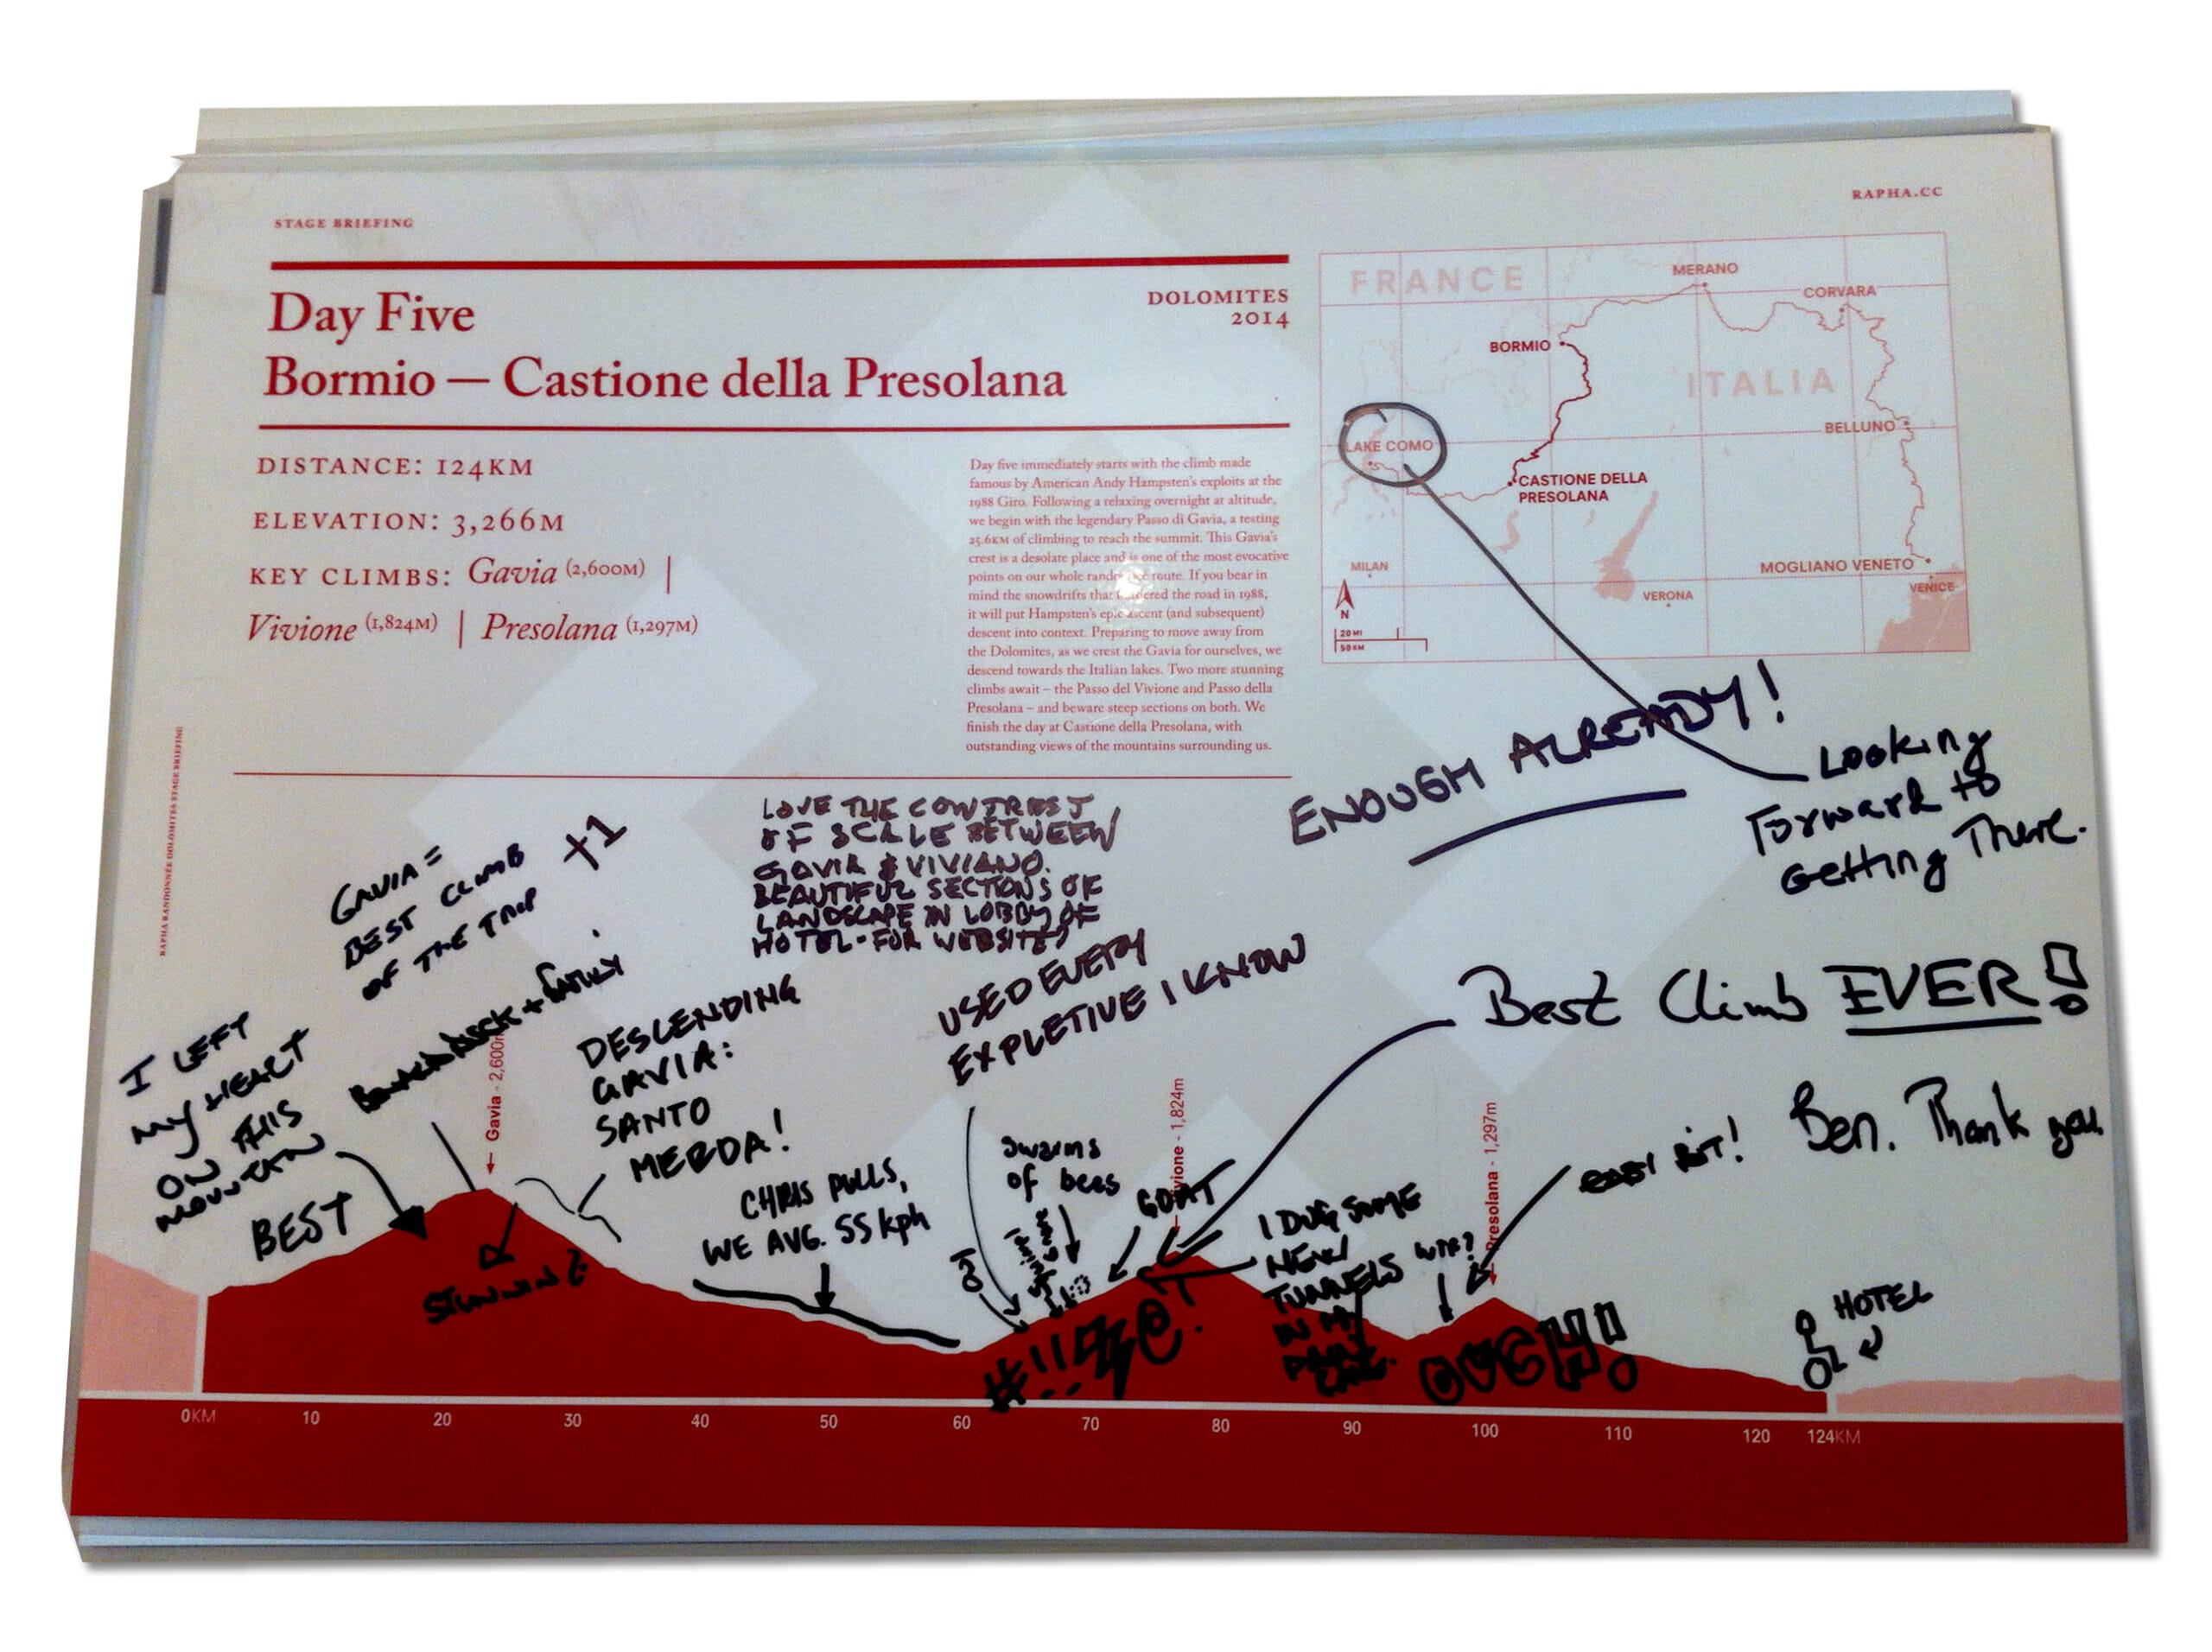 STAGE BRIEFING
RAPHA.CC
Day Five
Bormio — Castione della Presolana
DOLOMITES
2014
DISTANCE: 124KM
ELEVATION: 3,266M
KEY CLIMBS: Gavia (2,600M) |
Vivione (1,824M) | Presolana (1,297M)
Day five immediately starts with the climb made
famous by American Andy Hampsten's exploits at the
1988 Giro. Following a relaxing overnight at altitude,
we begin with the legendary Passo di Gavia, a testing
25.6KM of climbing to reach the summit. This Gavia's
crest is a desolate place and is one of the most evocative
points on our whole route. If you bear in
mind the snowdrifts that the road in 1988,
it will put Hampsten's epic ascent (and subsequent)
descent into context. Preparing to move away from
the Dolomites, as we crest the Gavia for ourselves, we
descend towards the Italian lakes. Two more stunning
climbs await – the Passo del Vivione and Passo della
Presolana – and beware steep sections on both. We
finish the day at Castione della Presolana, with
outstanding views of the mountains surrounding us.
FRANCE
MERANO
CORVARA
BORMIO
ITALIA
LAKE COMO
BELLUNO
CASTIONE DELLA
PRESOLANA
MILAN
MOGLIANO VENETO
VENICE
VERONA
N
20 MI
50 KM
RAPHA RANDONNÉE DOLOMITES STAGE BRIEFING
ENOUGH ALREADY!
Looking
Forward to
Getting There.
GAVIA =
BEST CLIMB
OF THE TRIP
+1
LOVE THE CONTRAST
OF SCALE BETWEEN
GAVIA & VIVIANO.
BEAUTIFUL SECTIONS OF
LANDSCAPE IN LOBBY OF
HOTEL - FOR WEBSITE?
I LEFT
MY HEART
ON THIS
MOUNTAIN
BEST
Gavia - 2,600m
DESCENDING
GAVIA:
SANTO
MERDA!
USED EVERY
EXPLETIVE I KNOW
Best Climb EVER!
Ben. Thank you.
CHRIS PULLS,
WE AVG. 55 kph
swarms
of bees
GOAT
Vivione - 1,824m
I DUG SOME
NEW
TUNNELS
IN MY
WTF?
Presolana - 1,297m
EASY BIT!
#!!
@!
OUCH!
HOTEL
0KM 10 20 30 40 50 60 70 80 90 100 110 120 124KM